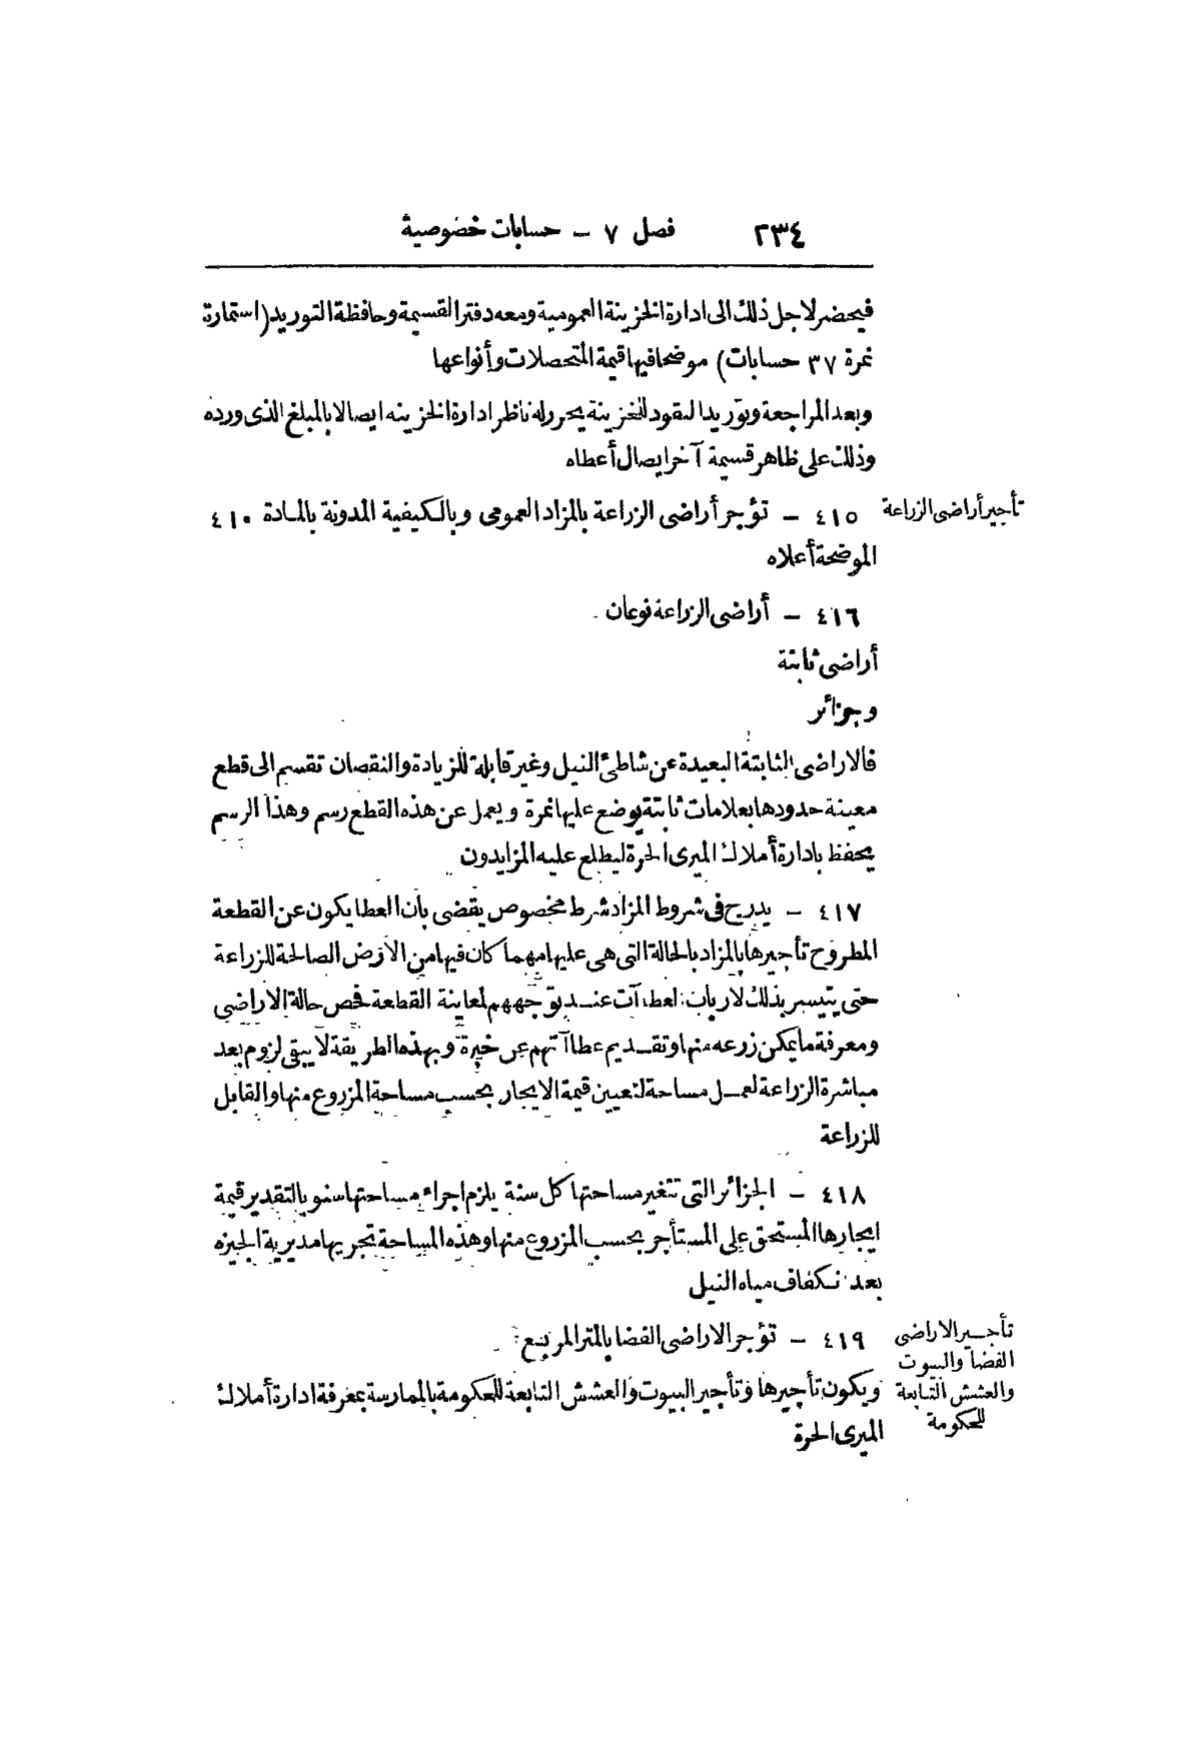 ٢٣٤ فصل ٧ – حسابات خصوصية
فيحضر لاجل ذلك الى ادارة الخزينة العمومية ومعه دفتر القسيمة وحافظة التوريد (استمارة
نمرة ٣٧ حسابات) موضحا فيها قيمة المتحصلات وأنواعها
وبعد المراجعة وتوريد النقود للخزينة يحرر له ناظر ادارة الخزينه ايصالا بالمبلغ الذى ورده
وذلك على ظاهر قسيمة آخر ايصال أعطاه
تأجير أراضى الزراعة
٤١٥ – تؤجر أراضى الزراعة بالمزاد العمومى وبالكيفية المدونة بالمادة ٤١٠
الموضحة أعلاه
٤١٦ – أراضى الزراعة نوعان
أراضى ثابتة
وجزائر
فالاراضى الثابتة البعيدة عن شاطئ النيل وغير قابلة للزيادة والنقصان تقسم الى قطع
معينة حدودها بعلامات ثابتة يوضع عليها نمرة ويعمل عن هذه القطع رسم وهذا الرسم
يحفظ بادارة أملاك الميرى الحرة ليطلع عليه المزايدون
٤١٧ – يدرج فى شروط المزاد شرط مخصوص يقضى بأن العطا يكون عن القطعة
المطروح تأجيرها بالمزاد بالحالة التى هى عليها مهما كان فيها من الارض الصالحة للزراعة
حتى يتيسر بذلك لارباب العطاآت عند توجههم لمعاينة القطعة فحص حالة الاراضى
ومعرفة ما يمكن زرعه منها وتقديم عطاآتهم عن خبرة وبهذه الطريقة لا يبقى لزوم بعد
مباشرة الزراعة لعمل مساحة لتعيين قيمة الايجار بحسب مساحة المزروع منها والقابل
للزراعة
٤١٨ – الجزائر التى تتغير مساحتها كل سنة يلزم اجراء مساحتها سنويا لتقدير قيمة
ايجارها المستحق على المستأجر بحسب المزروع منها وهذه المساحة تجريها مديرية الجيزه
بعد انكفاف مياه النيل
تأجير الاراضى
الفضا والبيوت
والعشش التابعة
للحكومة
٤١٩ – تؤجر الاراضى الفضا بالمتر المربع
ويكون تأجيرها وتأجير البيوت والعشش التابعة للحكومة بالممارسة بمعرفة ادارة أملاك
الميرى الحرة